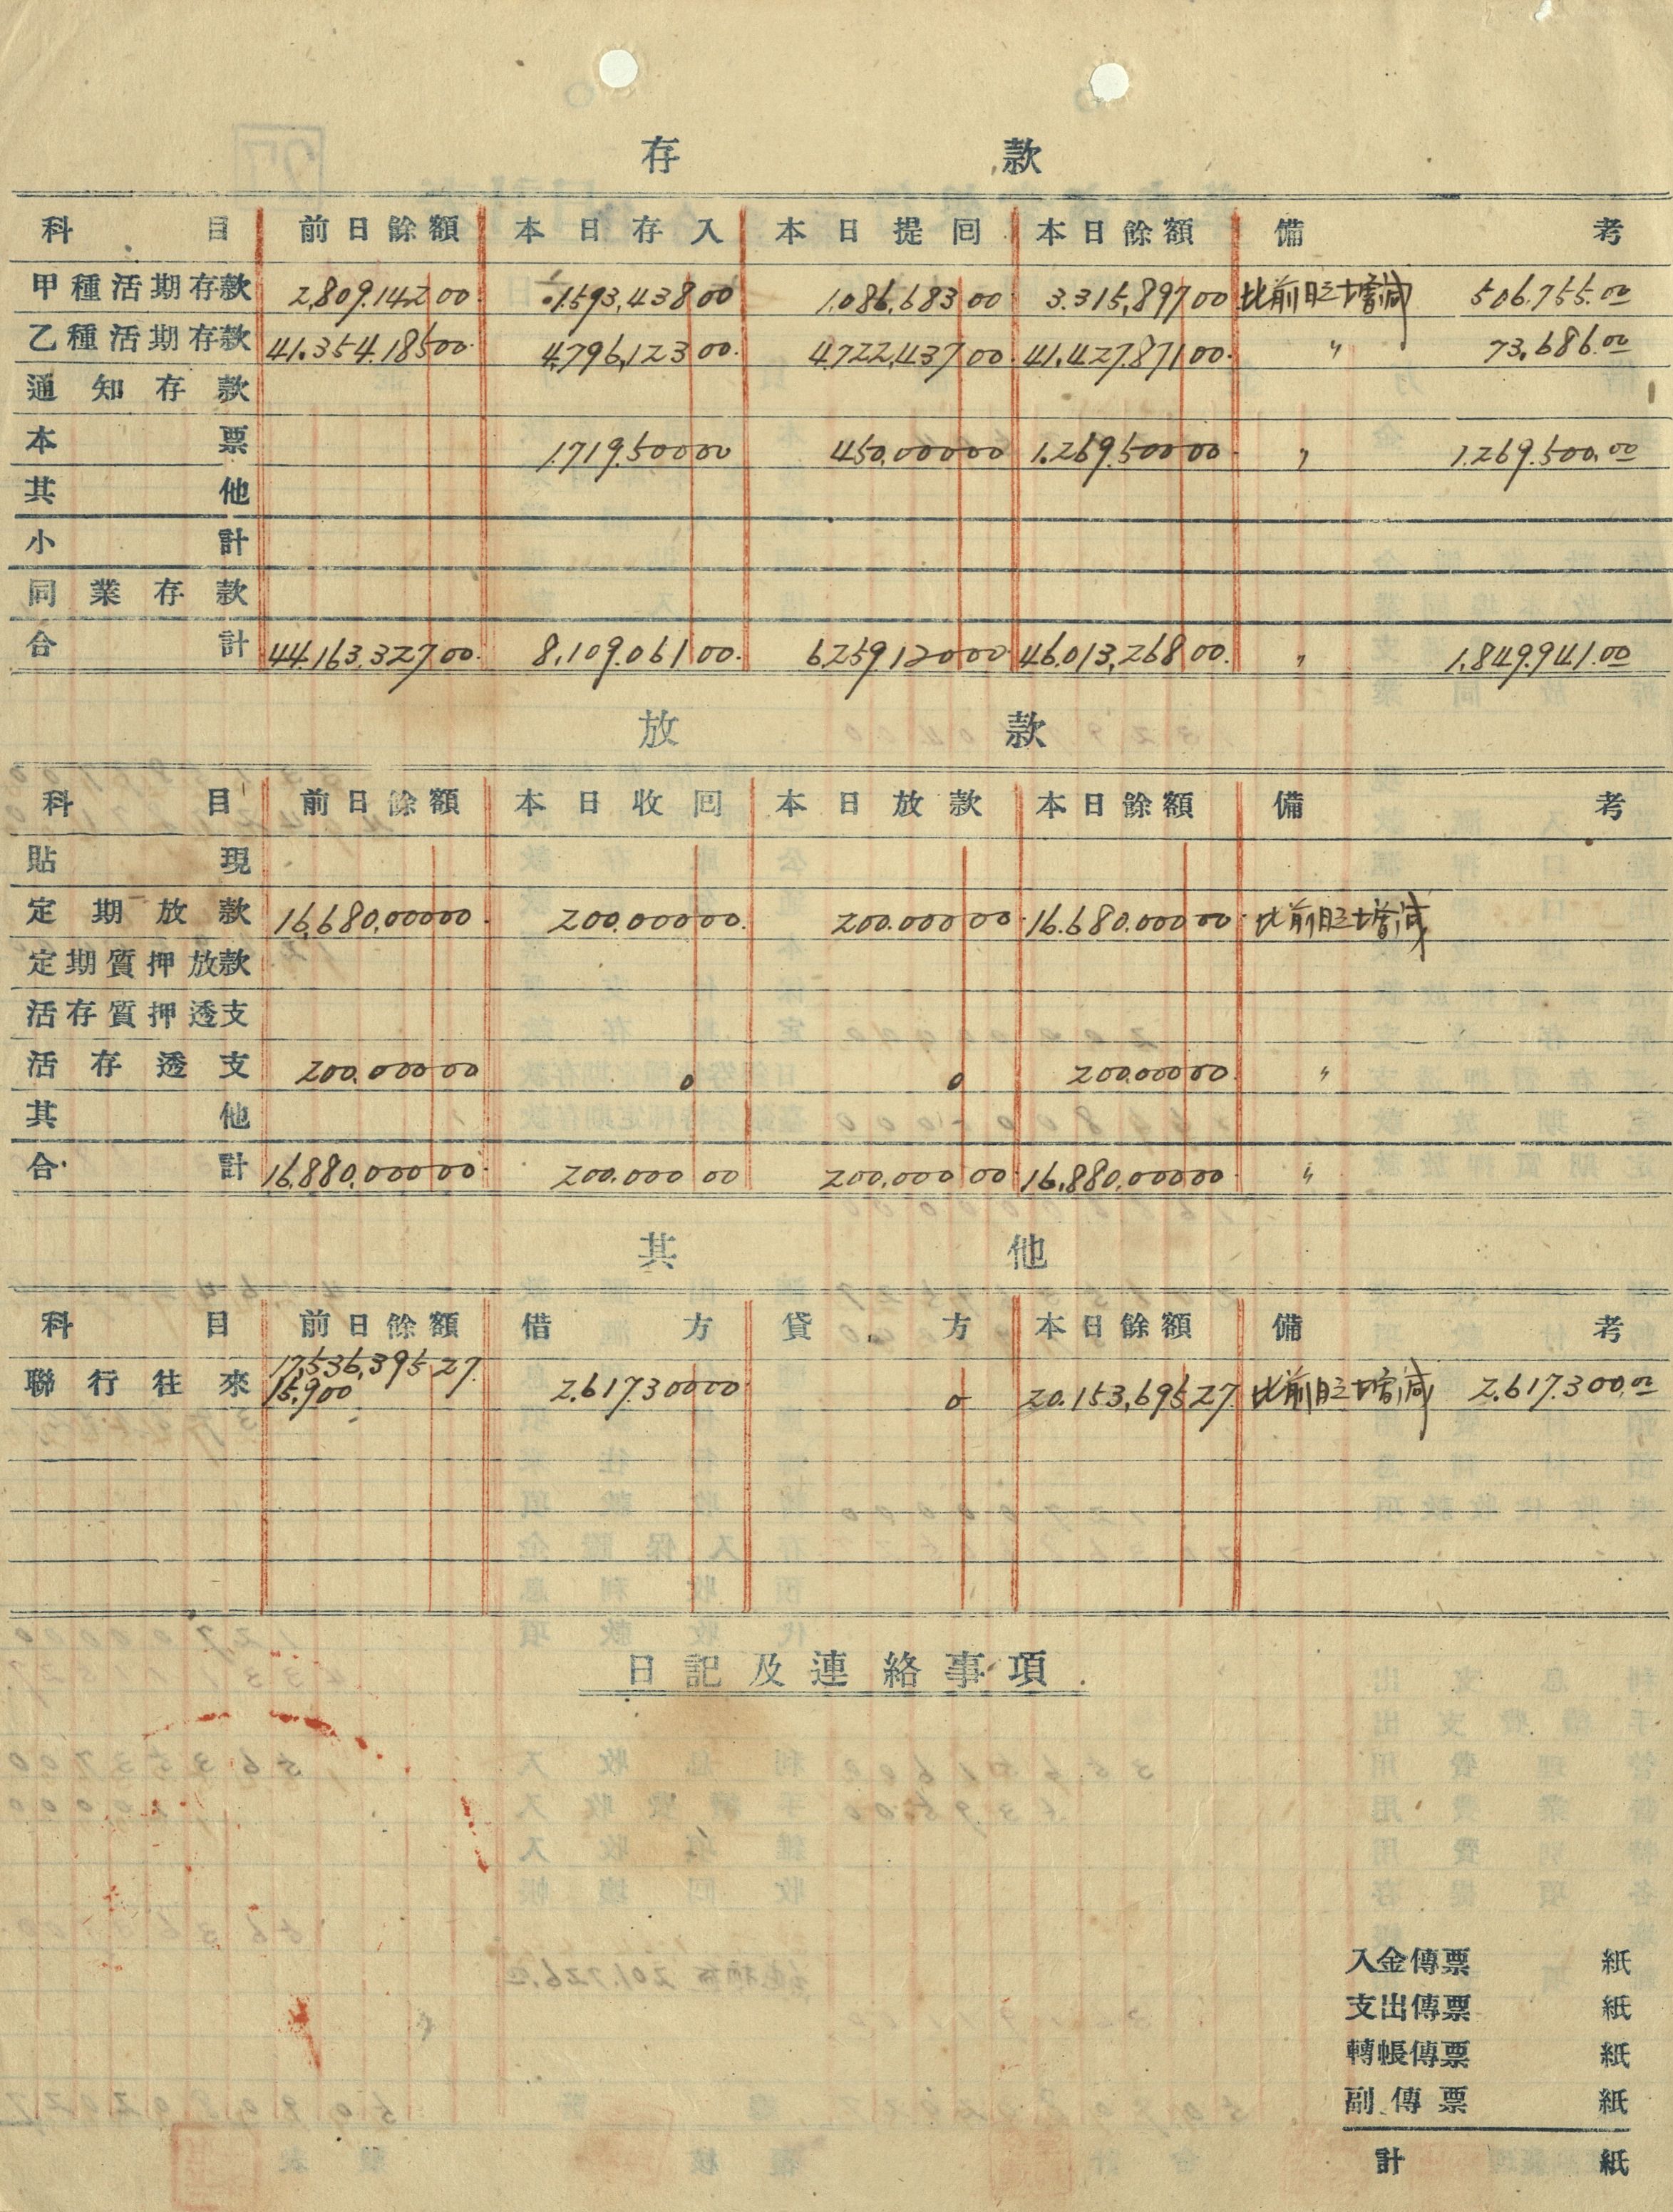 存 款
科目 前日餘額 本日存入 本日提回 本日餘額 備考
甲種活期存款 2,809.142 00 1.593,438 00 1.086,683 00 3.315,897 00 比前日之增減 506.755.00
乙種活期存款 41.354.185 00 4,796,123 00 4.722,437 00 41.427.871 00 〃 73,686.00
通知存款
本票 1.719.500 00 450,000 00 1.269.500 00 〃 1.269.500.00
其他
小計
同業存款
合計 44.163.327 00 8,109.061 00 6.259.120 00 46.013,268 00 〃 1,849.941.00
放 款
科目 前日餘額 本日收回 本日放款 本日餘額 備考
貼現
定期放款 16,680,000 00 200.000 00 200.000 00 16.680.000 00 比前日之增減
定期質押放款
活存質押透支
活存透支 200.000 00 0 0 200.000 00 〃
其他
合計 16,880,000 00 200.000 00 200,000 00 16,880,000 00 〃
其 他
科目 前日餘額 借方 貸方 本日餘額 備考
聯行往來 17,536,395 27 15,900 2.617.300 00 0 20.153,695 27 比前日之增減 2.617.300.00
日記及連絡事項
入金傳票 紙
支出傳票 紙
轉帳傳票 紙
副傳票 紙
計 紙